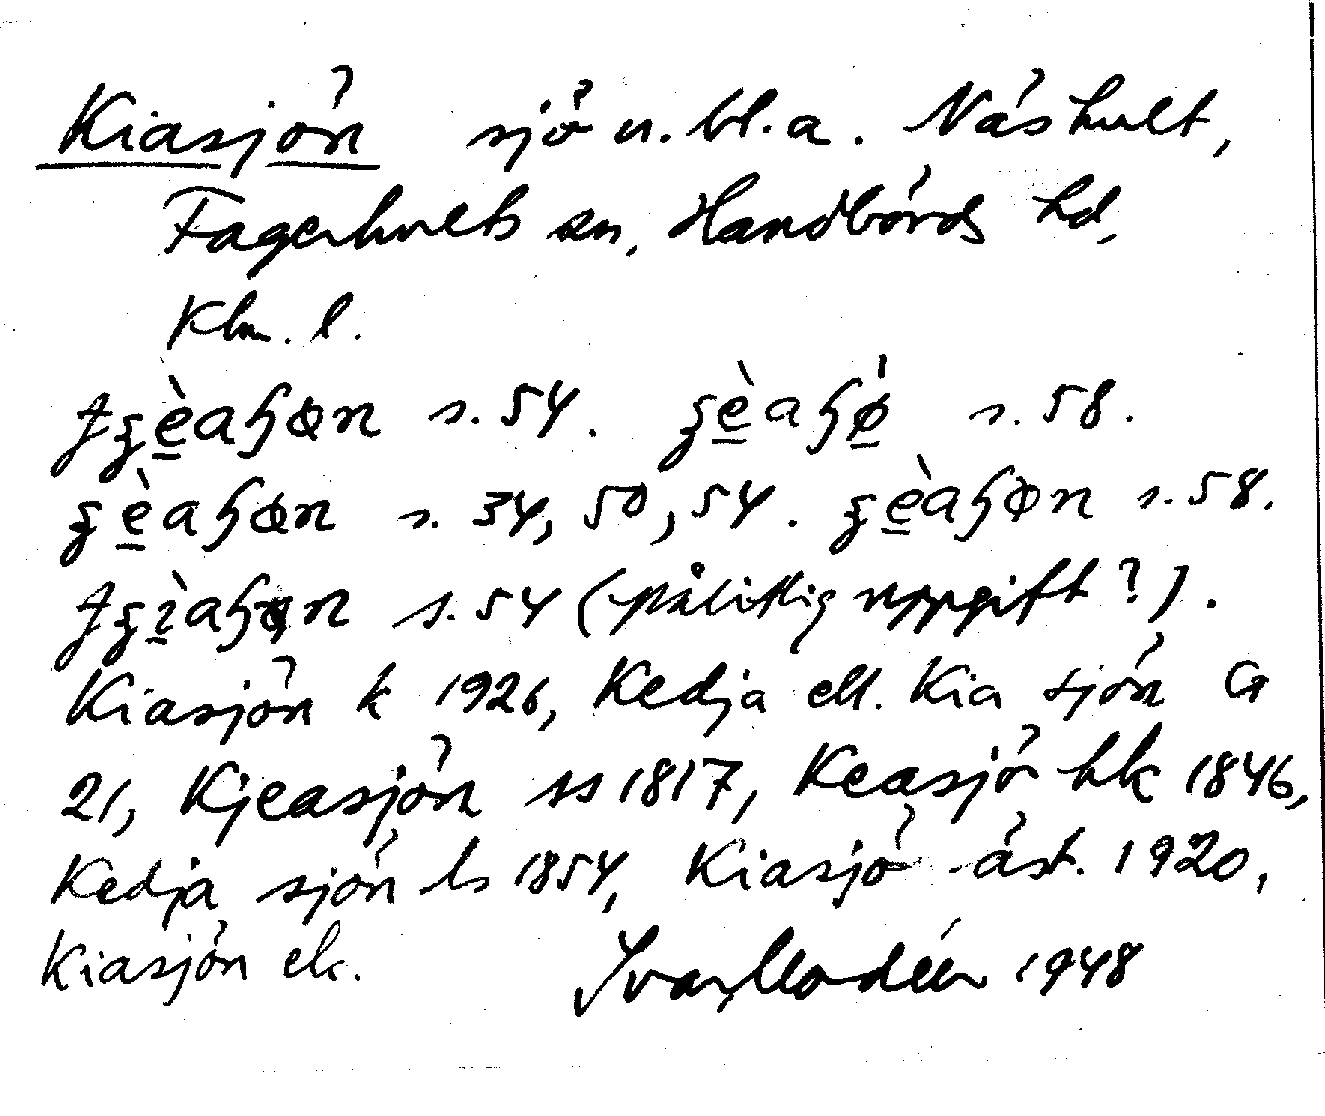 Kiasjön sjö n. bl. a. Näshult,
Fagerhults sn, Handbörds hd,
Klm. l.
s. 54. s. 58.
s. 34, 50, 54. s. 58.
s. 54 (pålitlig uppgift?).
Kiasjön k 1926, Kedja ell. Kia sjön G
21, Kjeasjön ss 1817, Keasjö hk 1846,
Kedja sjön ls 1854, Kiasjö äst. 1920,
Kiasjön ek. Ivar Modéer 1948